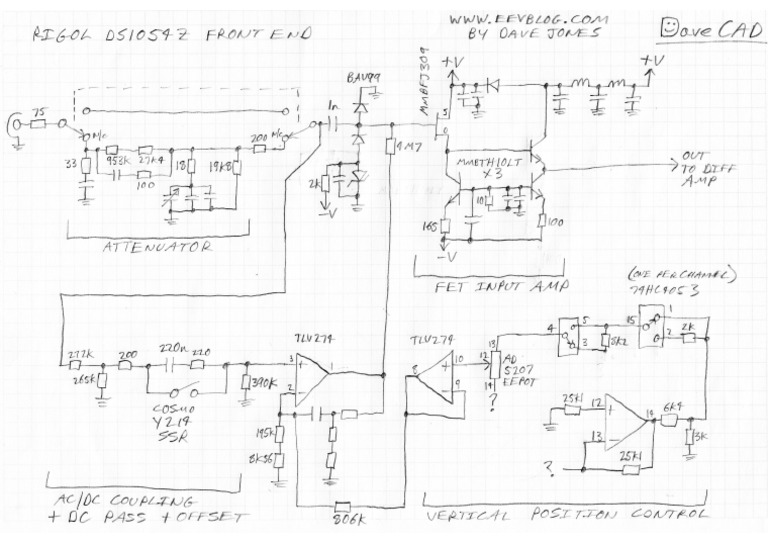 RIGOL DS1054Z FRONT END
WWW.EEVBLOG.COM
BY DAVE JONES
DaveCAD
+V
+V
BAV99
MMBFJ309
75
1n
S
N/C
N/C
200
4M7
33
953K
27K4
18
19K8
100
2K
-V
MMBTH10LT
X3
OUT
TO DIFF
AMP
10
165
100
-V
ATTENUATOR
FET INPUT AMP
(ONE PER CHANNEL)
74HC4053
TLV274
TLV274
277K
200
220n
220
265K
390K
COSMO
Y214
SSR
3
+
1
2
-
195K
8K56
806K
8
10
9
+
-
12
13
14
AD
5207
EEPOT
?
4
5
3
15
1
2
2K
25K1
12
+
13
-
14
6K4
3K
25K1
?
AC/DC COUPLING
+ DC PASS + OFFSET
VERTICAL POSITION CONTROL